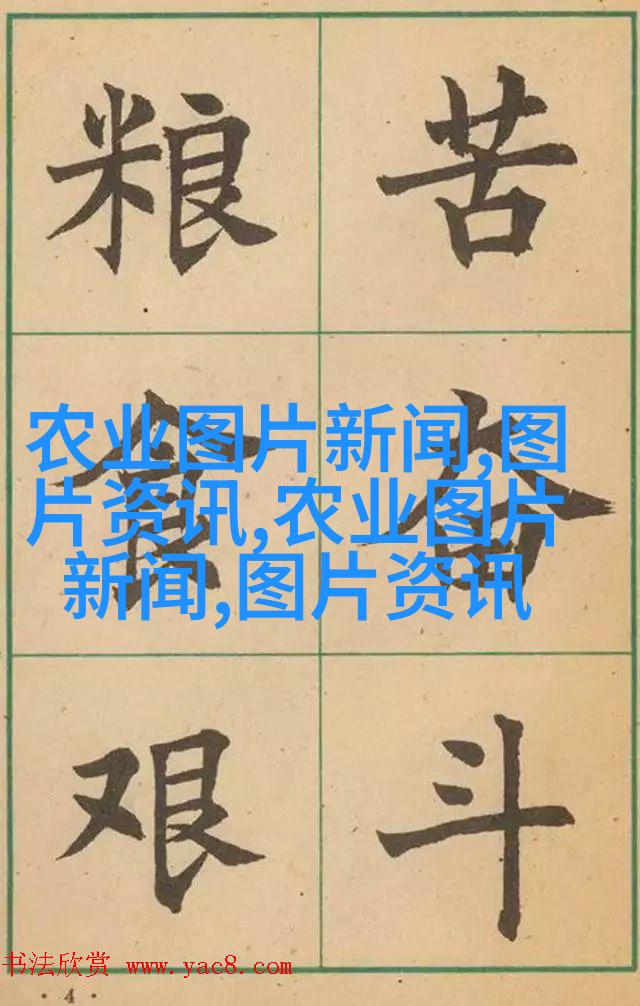 粮食艰
苦奋斗
农业图片新闻,图
片资讯,农业图片
新闻,图片资讯
书法欣赏 www.yac8.com
· 4 ·